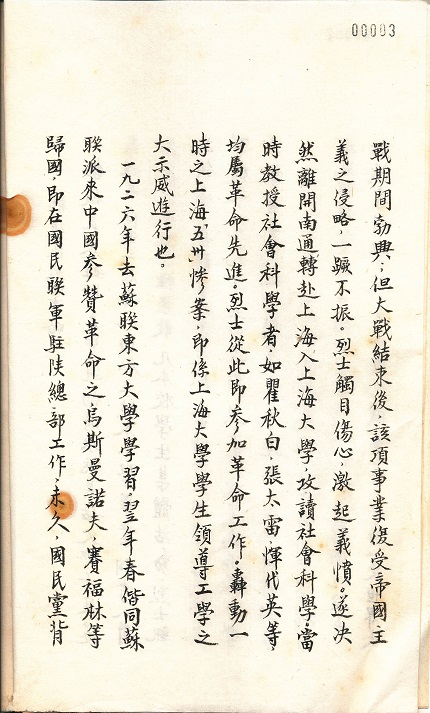 00003
戰期間勃興；但大戰結束後該項事業復受帝國主
義之侵略，一蹶不振。烈士觸目傷心，激起義憤。遂決
然離開南通轉赴上海入上海大學，攻讀社會科學。當
時教授社會科學者，如瞿秋白，張太雷，惲代英等，
均屬革命先進。烈士從此即參加革命工作。轟動一
時之上海五卅慘案，即係上海大學學生領導工學之
大示威遊行也。
一九二六年去蘇聯東方大學學習，翌年春偕同蘇
聯派來中國參贊革命之烏斯曼諾夫，賽福林等
歸國，即在國民聯軍駐陝總部工作，未久，國民黨背